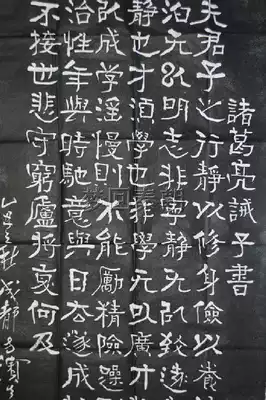 諸葛亮誡子書
夫君子之行靜以修身儉以養
泊无以明志非寧靜无以致遠
靜也才須學也非學无以廣才
以成学淫慢則不能勵精險躁
治性年與時馳意與日去遂成
不接世悲守窮廬將复何及